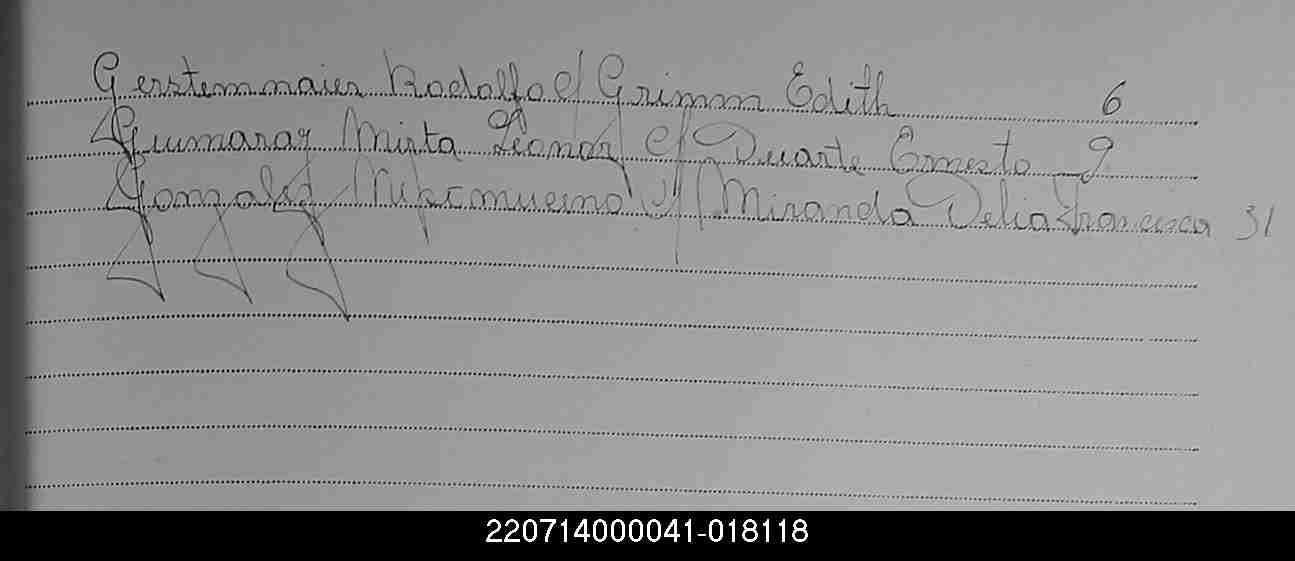 Gerstemmaier Rodolfo c/ Grimm Edith 6
Guimaraz Mirta Leonor c/ Duarte Ernesto 9
Gonzalez c/ Miranda Delia Francisca 31
220714000041-018118